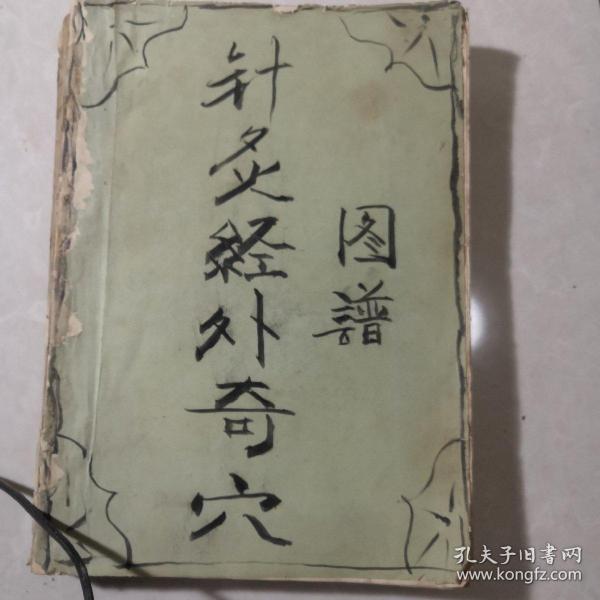 针灸経外奇穴
图譜
孔夫子旧書网
www.kongfz.com